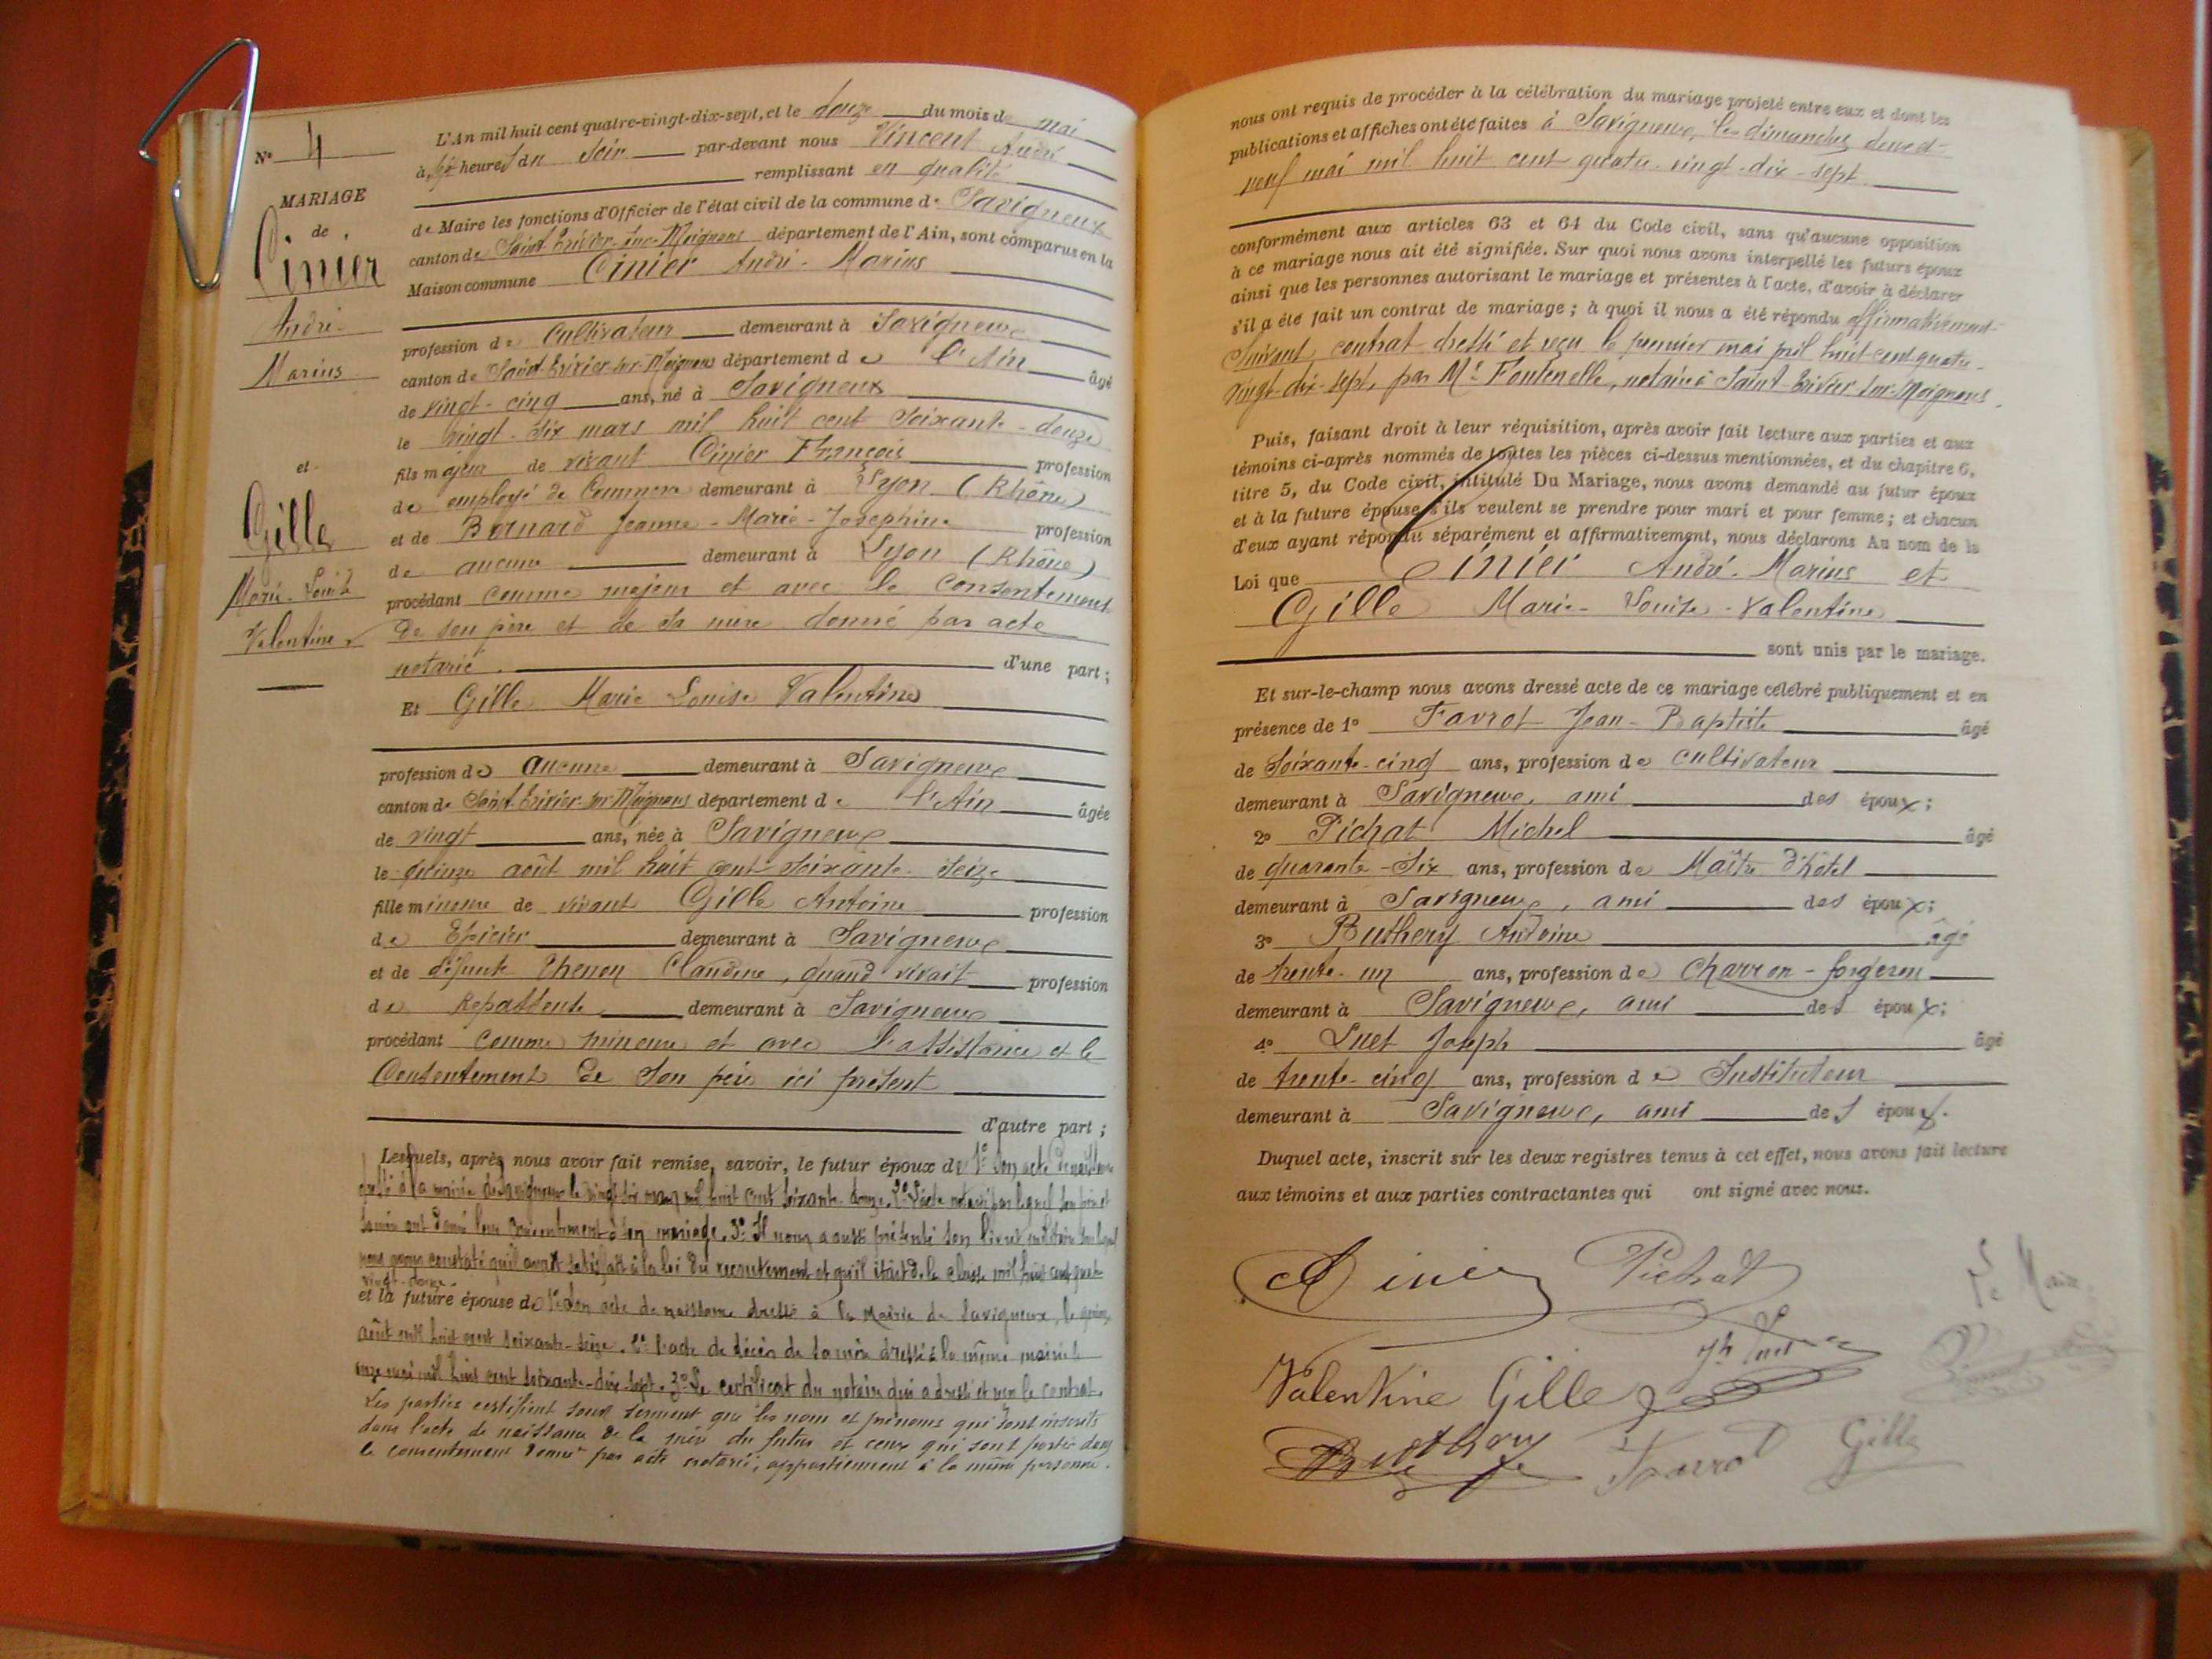 N° 4
MARIAGE
de
Cinier
André-
Marius
et
Gille
Marie-Louise
Valentine
L'An mil huit cent quatre-vingt-dix-sept, et le douze du mois de mai
à heures du soir par-devant nous Vincent André
remplissant en qualité
de Maire les fonctions d'Officier de l'état civil de la commune de Savigneux
canton de Saint-Trivier-sur-Moignans département de l'Ain, sont comparus en la
Maison commune Cinier André-Marius
profession de cultivateur demeurant à Savigneux
canton de Saint-Trivier-sur-Moignans département de l'Ain âgé
de vingt-cinq ans, né à Savigneux
le vingt-six mars mil huit cent soixante-douze
fils majeur de vivant Cinier François profession
de employé de Commerce demeurant à Lyon (Rhône)
et de Bernard Jeanne-Marie-Josephine profession
de aucune demeurant à Lyon (Rhône)
procédant comme majeur et avec le consentement
de son père et de sa mère donné par acte
notarié. d'une part;
Et Gille Marie Louise Valentine
profession de aucune demeurant à Savigneux
canton de Saint-Trivier-sur-Moignans département de l'Ain âgée
de vingt ans, née à Savigneux
le quinze août mil huit cent soixante-seize
fille mineure de vivant Gille Antoine profession
de Epicier demeurant à Savigneux
et de défunte Thenon Claudine, quand vivait profession
de Repasseuse demeurant à Savigneux
procédant comme mineure et avec l'assistance et le
Consentement de son père ici présent
d'autre part;
Lesquels, après nous avoir fait remise, savoir, le futur époux de 1° son acte de naissance
dressé à la mairie de Savigneux le vingt six mars mil huit cent soixante-douze. 2° L'acte notarié par lequel son père et
sa mère ont donné leur consentement à son mariage. 3° Il nous a aussi présenté son livret militaire sur lequel
nous avons constaté qu'il avait satisfait à la loi du recrutement et qu'il était de la classe mil huit cent quatre
vingt-douze.
et la future épouse de 1° son acte de naissance dressé à la Mairie de Savigneux, le quinze
août mil huit cent soixante-seize. 2° L'acte de décès de sa mère dressé à la même mairie le
onze mai mil huit cent soixante-dix-sept. 3° Le certificat du notaire qui a dressé et reçu le contrat.
Les parties certifient sous serment que les nom et prénoms qui sont inscrits
dans l'acte de naissance de la mère du futur et ceux qui sont portés dans
le consentement donné par acte notarié, appartiennent à la même personne.
nous ont requis de procéder à la célébration du mariage projeté entre eux et dont les
publications et affiches ont été faites à Savigneux, les dimanches deux et
neuf mai mil huit cent quatre-vingt-dix-sept
conformément aux articles 63 et 64 du Code civil, sans qu'aucune opposition
à ce mariage nous ait été signifiée. Sur quoi nous avons interpellé les futurs époux
ainsi que les personnes autorisant le mariage et présentes à l'acte, d'avoir à déclarer
s'il a été fait un contrat de mariage; à quoi il nous a été répondu affirmativement
Suivant contrat dressé et reçu le premier mai mil huit cent quatre-
vingt-dix-sept, par Me Fontenelle, notaire à Saint-Trivier-sur-Moignans.
Puis, faisant droit à leur réquisition, après avoir fait lecture aux parties et aux
témoins ci-après nommés de toutes les pièces ci-dessus mentionnées, et du chapitre 6,
titre 5, du Code civil, intitulé Du Mariage, nous avons demandé au futur époux
et à la future épouse s'ils veulent se prendre pour mari et pour femme; et chacun
d'eux ayant répondu séparément et affirmativement, nous déclarons Au nom de la
Loi que Cinier André-Marius et
Gille Marie-Louise-Valentine
sont unis par le mariage.
Et sur-le-champ nous avons dressé acte de ce mariage célébré publiquement et en
présence de 1° Favrot Jean-Baptiste âgé
de soixante-cinq ans, profession de cultivateur
demeurant à Savigneux, ami des époux;
2° Pichat Michel âgé
de quarante-six ans, profession de Maître d'hôtel
demeurant à Savigneux, ami des époux;
3° Buthery Antoine âgé
de trente-un ans, profession de Charron-forgeron
demeurant à Savigneux, ami des époux;
4° Luet Joseph âgé
de trente-cinq ans, profession de Instituteur
demeurant à Savigneux, ami des époux.
Duquel acte, inscrit sur les deux registres tenus à cet effet, nous avons fait lecture
aux témoins et aux parties contractantes qui ont signé avec nous.
Cinier Pichat Le Maire,
Jh Luet
Valentine Gille
Buthery Favrot Gille